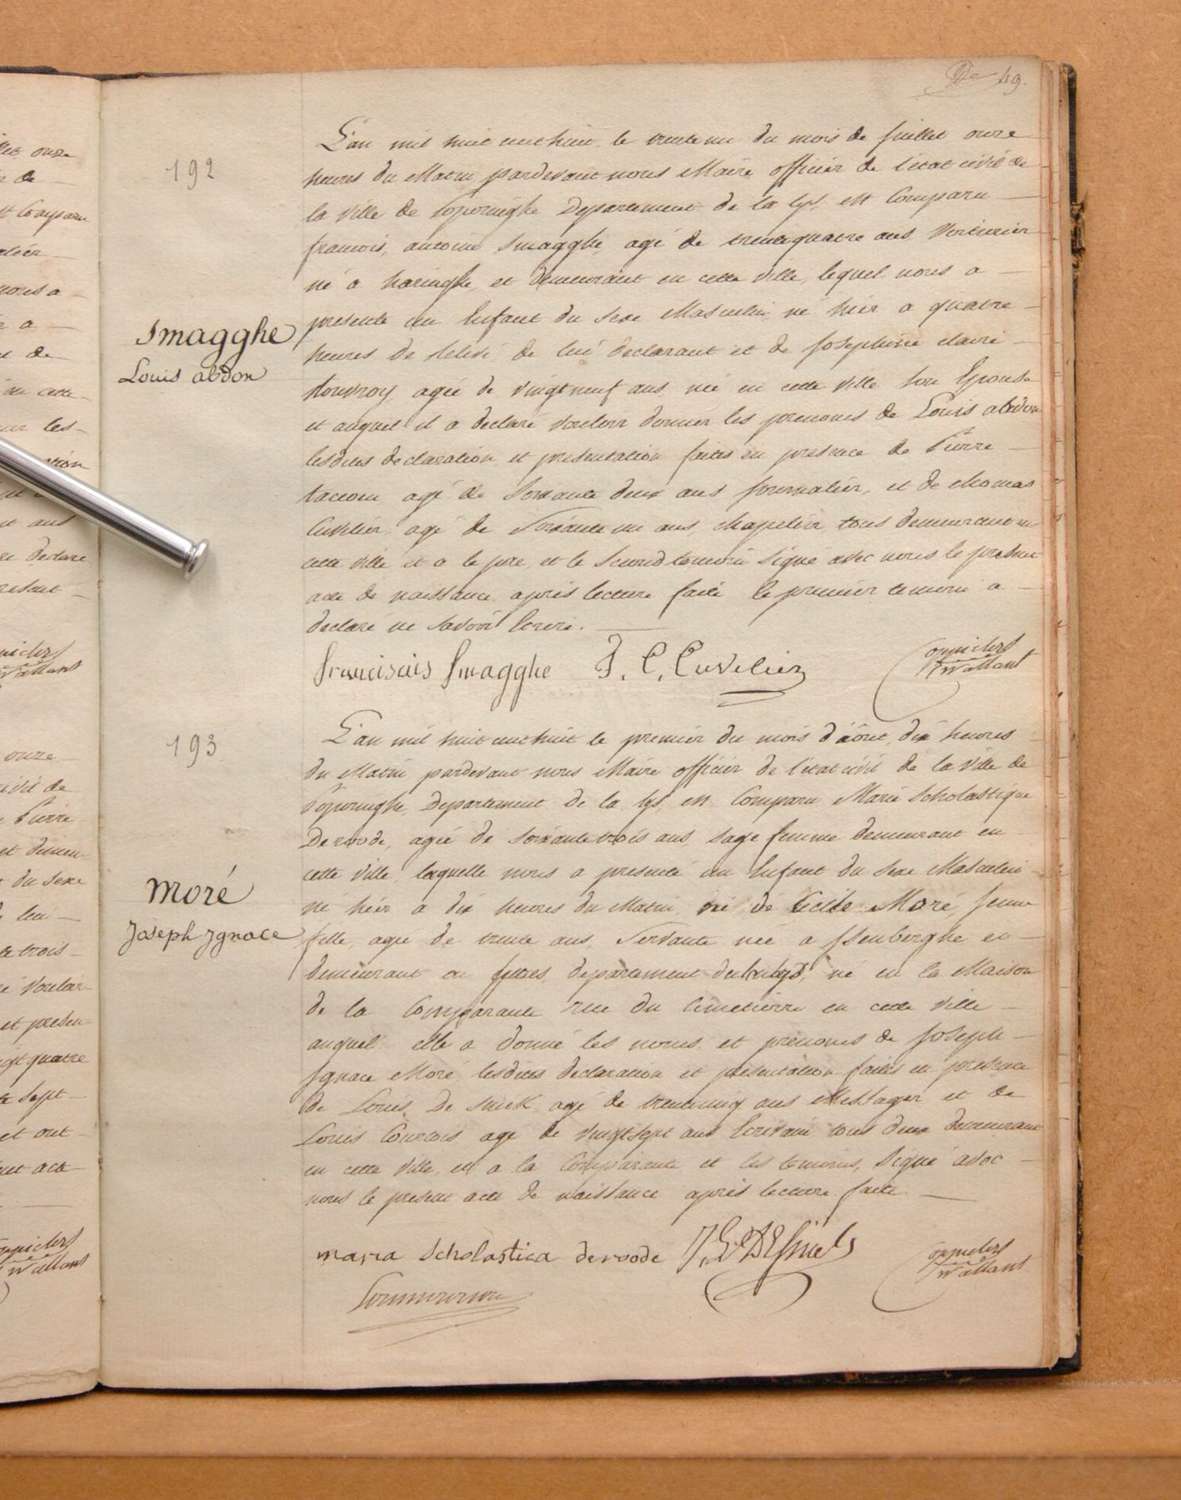 49.
192
L'an mil huit cent huit le trente un du mois de Juillet onze
heures du Matin pardevant nous Maire officier de l'etat civil de
la ville de Poperinghe Departement de la Lys, est Comparu
francois, antoine Smagghe, agé de trente quatre ans, Voiturier
né a haringhe, et demeurant en cette ville, lequel nous a
presenté un Enfant du sexe Masculin, né hier a quatre
Smagghe
Louis abdon
heures de relevé de lui declarant et de Josephine claire
agée de vingtneuf ans, née en cette ville Son Epouse
et auquel il a declaré vouloir donner les prenoms de Louis abdon
lesdites declaration et presentation faites en presence de Pierre
agé de Soixante deux ans journalier, et de thomas
Cuvelier agé de Soixante un ans, chapelier tous demeurant en
cette ville et a le pere, et le second temoin signé avec nous le present
acte de naissance après lecture faite le premier temoin a
declaré ne Savoir Ecrire.
franciscuis Smagghe F. C. Cuvelier
193
L'an mil huit cent huit le premier du mois d'août, dix heures
du Matin pardevant nous Maire officier de l'etat civil de la ville de
Poperinghe, departement de la Lys, est Comparu Marie Scholastique
Deroode, agée de soixante trois ans sage femme demeurant en
cette ville, laquelle nous a presenté un Enfant du sexe Masculin
Moré
Joseph Ignace
né hier a dix heures du Matin, né de Cecile Moré, jeune
fille, agée de trente ans, Servante née a Isenberghe et
demeurant a departement de la Lys, né en la Maison
de la Comparante rue du Cimetierre en cette ville
auquel elle a donné les noms et prenoms de Joseph
Ignace Moré lesdites declaration et presentation faites en presence
de Louis De agé de trente cinq ans Messager et de
Louis agé de vingt sept ans Ecrivain tous deux demeurant
en cette ville, et a la Comparante et les temoins, Signé avec
nous le present acte de naissance après lecture faite
maria scholastica deroode